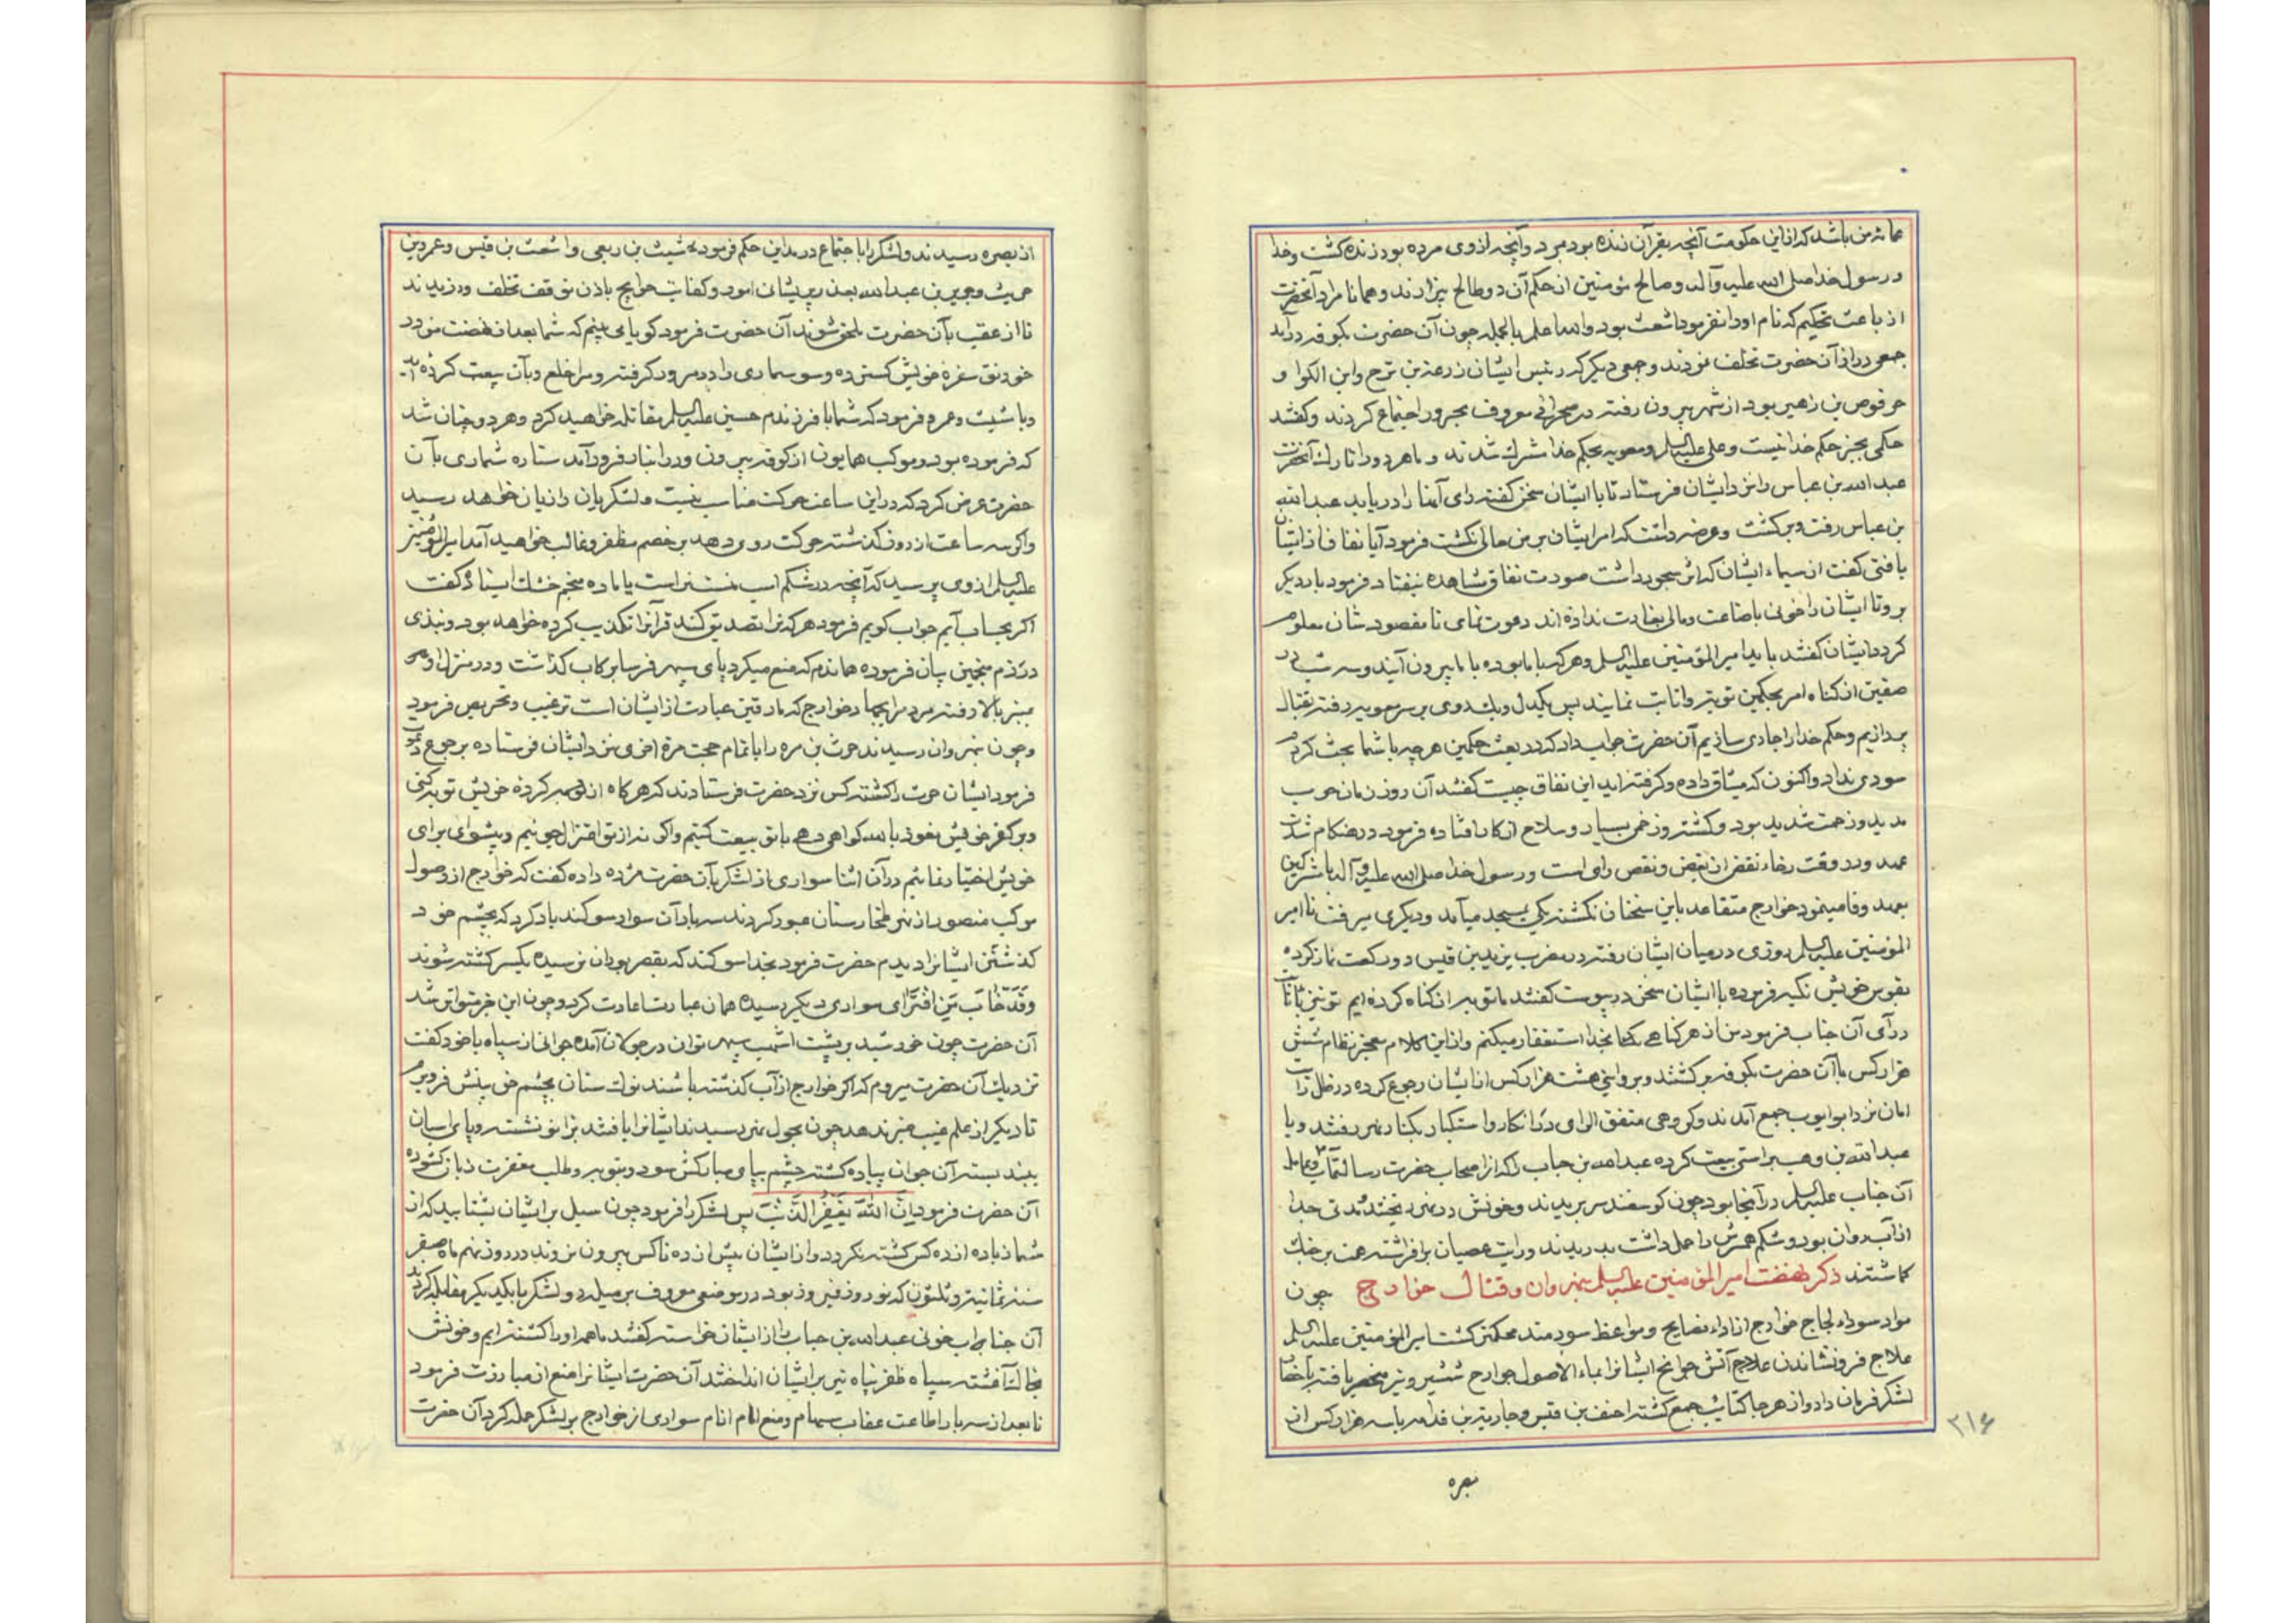 عمامه من باشد که از این حکومت آنچه بقرآن زنده بود بمرد و آنچه از وی مرده بود زنده گشت و خدا
و رسول خدا صلی الله علیه وآله و صالح مؤمنین از حکم آن دو طالح بیزارند و همانا مراد آنحضرت
از باعث تحکیم که نام او را نفرمود اشعث بود والله اعلم بالجمله چون آن حضرت بکوفه درآمد
جمعی در از آن حضرت تخلف نمودند و جمعی دیگر که رئیس ایشان زرعة بن برج و ابن الکوا و
حرقوص بن زهیر بود از شهر بیرون رفته در صحرائی معروف بحرورا اجتماع کردند و گفتند
حکمی بجز حکم خدا نیست و علی علیه السلم و معویه بحکم خدا شرک شدند و ما هر دو را تارک آنحضرت
عبدالله بن عباس را نزد ایشان فرستاد تا با ایشان سخن گفته رای آنها را دریابد عبدالله
بن عباس رفت و برگشت و عرضه داشت که امر ایشان بر من حالی نگشت فرمود آیا نفاق از ایشان
یافتی گفت از سیماء ایشان که اثر سجود داشت صورت نفاق مشاهده نیفتاد فرمود بار دیگر
برو تا ایشان را خونی باضاعت و مالی بغارت نداده اند دعوت نمای تا مقصودشان معلوم
گردد ایشان گفتند باید امیرالمؤمنین علیه السلم و هر که با ما بوده با ما بیرون آیند و سه شب در
صفین از گناه امر بحکمین توبه و انابت نمایند پس یکدل و یکروی بر سر معویه رفته بقتال
پردازیم و حکم خدا را جاری سازیم آن حضرت جواب داد که در بعث حکمین هر چه با شما بحث کردم
سودی نداد و اکنون که میثاق داده و گرفته اید این نفاق چیست گفتند آن روز زمان حرب
مدید و زحمت شدید بود و کشته و زخمی بسیار و سلاح از کار افتاده فرمود در هنگام شدت
عهد و در وقت رخاء نقض از نقص رای است و رسول خدا صلی الله علیه وآله با مشرکین
بعهد وفا مینمود خوارج متقاعد باین سخنان نگشته یکی بمسجد میآمد و دیگری میرفت تا امیر
المؤمنین علیه السلم روزی در میان ایشان رفته در مضرب یزید بن قیس دو رکعت نماز کرده
بقوس خویش تکیه فرموده با ایشان سخن در پیوست گفتند ما توبه از گناه کرده ایم تو نیز بانابت
درآی آن جناب فرمود من از هر گناهی بخدا استغفار میکنم و از این کلام معجز نظام شش
هزار کس با آن حضرت بکوفه برگشتند و بروایتی هشت هزار کس از ایشان رجوع کرده در ظل رایت
امان نزد ابو ایوب جمع آمدند و گروهی متفق الرای در انکار و استکبار بکنار نهر رفتند و با
عبدالله بن وهب راسبی بیعت کرده عبدالله بن خباب را که از اصحاب حضرت رسالتمآب و عامل
آن جناب علیه السلم در آنجا بود چون گوسفند سر بریدند و خونش در نهر ریختند
از آب روان بود و شکم همسرش را حمل داشت بدریدند و رایت عصیان برافراشته همت بر جنک
گماشتند ذکر نهضت امیرالمؤمنین علیه السلم بنهروان و قتال خوارج چون
مواد سوداء لجاج خوارج از اداء نصایح و مواعظ سودمند ممکن نگشت امیرالمؤمنین علیه السلم
علاج فرونشاندن آتش جوانح ایشانرا بماء الاصول جوارح شمشیر و تیر منحصر یافته باحضار
لشکر فرمان داد و از هر جا کتائب جمع گشته احنف بن قیس و جاریة بن قدامه با سه هزار کس از
بصره
۲۱۶
از بصره رسیدند و لشکر را باجتماع در مداین حکم فرمود شبث بن ربعی و اشعث بن قیس و عمرو بن
حریث و جریر بن عبدالله بعذر پریشان امور و کفایت حوایج باذن توقف تخلف ورزیدند
تا از عقب بآن حضرت ملحق شوند آن حضرت فرمود گویا می بینم که شما بعد از نهضت من در
خورنق سفره خویش گسترده و سوسماری را در مرور گرفته و مرا خلع و بآن بیعت کرده اید
و با شبث و عمرو فرمود که شما با فرزندم حسین علیه السلم مقاتله خواهید کرد و هر دو چنان شد
که فرموده بود و موکب همایون از کوفه بیرون و در انبار فرود آمد ستاره شماری بآن
حضرت عرض کرد که در این ساعت حرکت مناسب نیست و لشکریان را زیان خواهد رسید
و اگر سه ساعت از روز گذشته حرکت روی دهد بر خصم مظفر و غالب خواهید آمد امیرالمؤمنین
علیه السلم از وی پرسید که آنچه در شکم اسب منست نر است یا ماده منجم خشک ایستاد و گفت
اگر بحساب آیم جواب گویم فرمود هر که ترا تصدیق کند قرآنرا تکذیب کرده خواهد بود و نبذی
در ذم منجمین بیان فرموده هماندم که منع میکرد پای سپهر فرسا برکاب گذاشت و در منزل
بمنبر بالا رفته مردم را بجهاد خوارج که مارقین عبارت از ایشان است ترغیب و تحریص فرمود
و چون بنهروان رسیدند حرث بن مره را باتمام حجت مرة اخری نزد ایشان فرستاده برجوع دعوت
فرمود ایشان حرث را کشته کس نزد حضرت فرستادند که هرگاه از خویش توبه کنی
و بر کفر خویش نعوذ بالله گواهی دهی با تو بیعت کنیم و اگر نه از تو اعتزال جوئیم و پیشوائی برای
خویش اختیار نمائیم در آن اثنا سواری از لشکر بآن حضرت مژده داده گفت که خوارج از وصول
موکب منصور از نهر طخارستان عبور کردند سه بار آن سوار سوگند یاد کرد که بچشم خود
گذشتن ایشانرا دیدم حضرت فرمود بخدا سوگند که بقصر بوران نرسیده یکسر کشته شوند
وَقَدْ خابَ مَنِ افْتَرىٰ سواری دیگر رسیده همان عبارت اعادت کرد و چون این خبر متواتر شد
آن حضرت چون خورشید بر پشت اشهب سپهر توان در جولان آمده جوانی از سپاه با خود گفت
نزدیک آن حضرت میروم که اگر خوارج از آب گذشته باشند نوک سنان بچشم خق بینش فرو برم
تا دیگر از علم غیب خبر ندهد چون بحول نهر رسیدند ایشانرا یافتند بزانو نشسته و پای اسبان
ببند بسته آن جوان پیاده گشته چشم بپای مبارکش سود و بتوبه و طلب مغفرت زبان گشوده
آن حضرت فرمود اِنَّ اللّٰهَ یَغْفِرُ الذُّنوُبَ پس لشکر را فرمود چون سیل بر ایشان بشتابید که از
شما زیاده از ده کس کشته نگردد و از ایشان بیش از ده تا کس بیرون نروند در روز نهم ماه صفر
سنه ثمانیة و ثلثون که نوروز فیروز بود در موضعی معروف برمیله دو لشکر با یکدیگر مقابله کردند
آن جناب خونی عبدالله بن خباب را از ایشان خواسته گفتند ما همه او را کشته ایم و خونش
بخاک آغشته سپاه ظفر پناه تیر بر ایشان انداختند آن حضرت ایشانرا منع از مبادرت فرمود
تا بعد از سه بار اطاعت عقاب سهام و منع امام انام سواری از خوارج بر لشکر حمله کرد آن حضرت